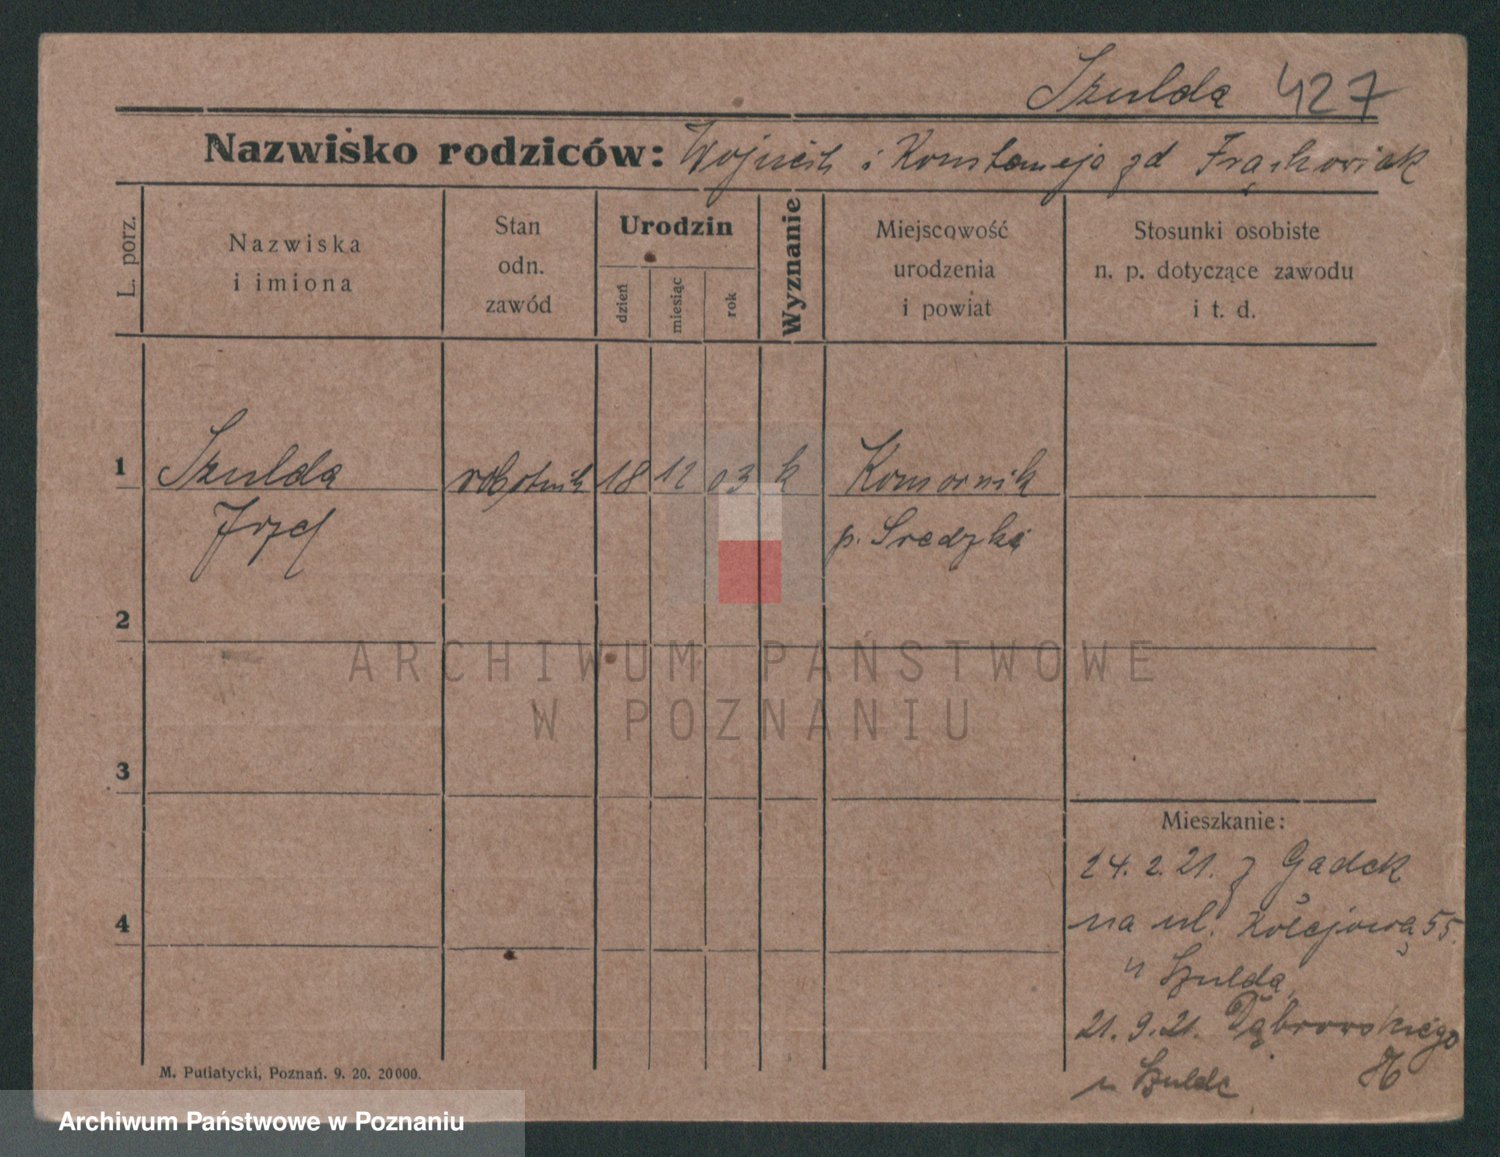 Szulda 427
Nazwisko rodziców: Wojciech i Konstancja zd Frąckowiak
L. porz.
Nazwiska
i imiona
Stan
odn.
zawód
Urodzin
dzień
miesiąc
rok
Wyznanie
Miejscowość
urodzenia
i powiat
Stosunki osobiste
n. p. dotyczące zawodu
i t. d.
1 Szulda robotnik 18 12 03 k Komornik
Józef p. Sredzki
2
ARCHIWUM PAŃSTWOWE
W POZNANIU
3
Mieszkanie:
24. 2. 21. z Gadek
4
na ul. Kolejową 55.
u Szulda
21. 9. 21. Dąbrowskiego
u Szulde
M. Putiatycki, Poznań. 9. 20. 20000.
Archiwum Państwowe w Poznaniu